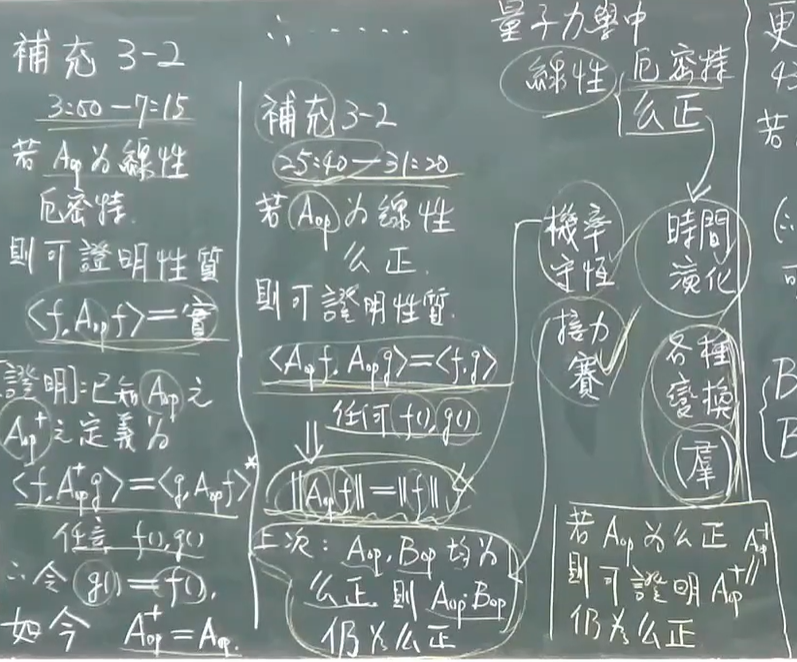 補充 3-2
3:50-7:15
若 Aop 為線性
厄密特.
則可證明性質
<f, Aop f> = 實
[證明]:已知 Aop 之
Aop⁺ 之定義為
<f, Aop⁺ g> = <g, Aop f>*
任意 f(), g()
∴令 g() = f(),
如今 Aop⁺ = Aop.
∴ ......
補充 3-2
25:40-31:20
若 Aop 為線性
么正.
則可證明性質.
<Aop f, Aop g> = <f, g>
任何 f(), g()
⇓
||Aop f|| = ||f||
上次: Aop, Bop 均為
么正, 則 Aop·Bop
仍為么正
量子力學中
線性
厄密特
么正
機率
守恆
時間
演化
接力
賽
各種
變換
(群)
若 Aop 為么正
則可證明 Aop⁺
仍為么正
更
43
若
(∴
可
B
B